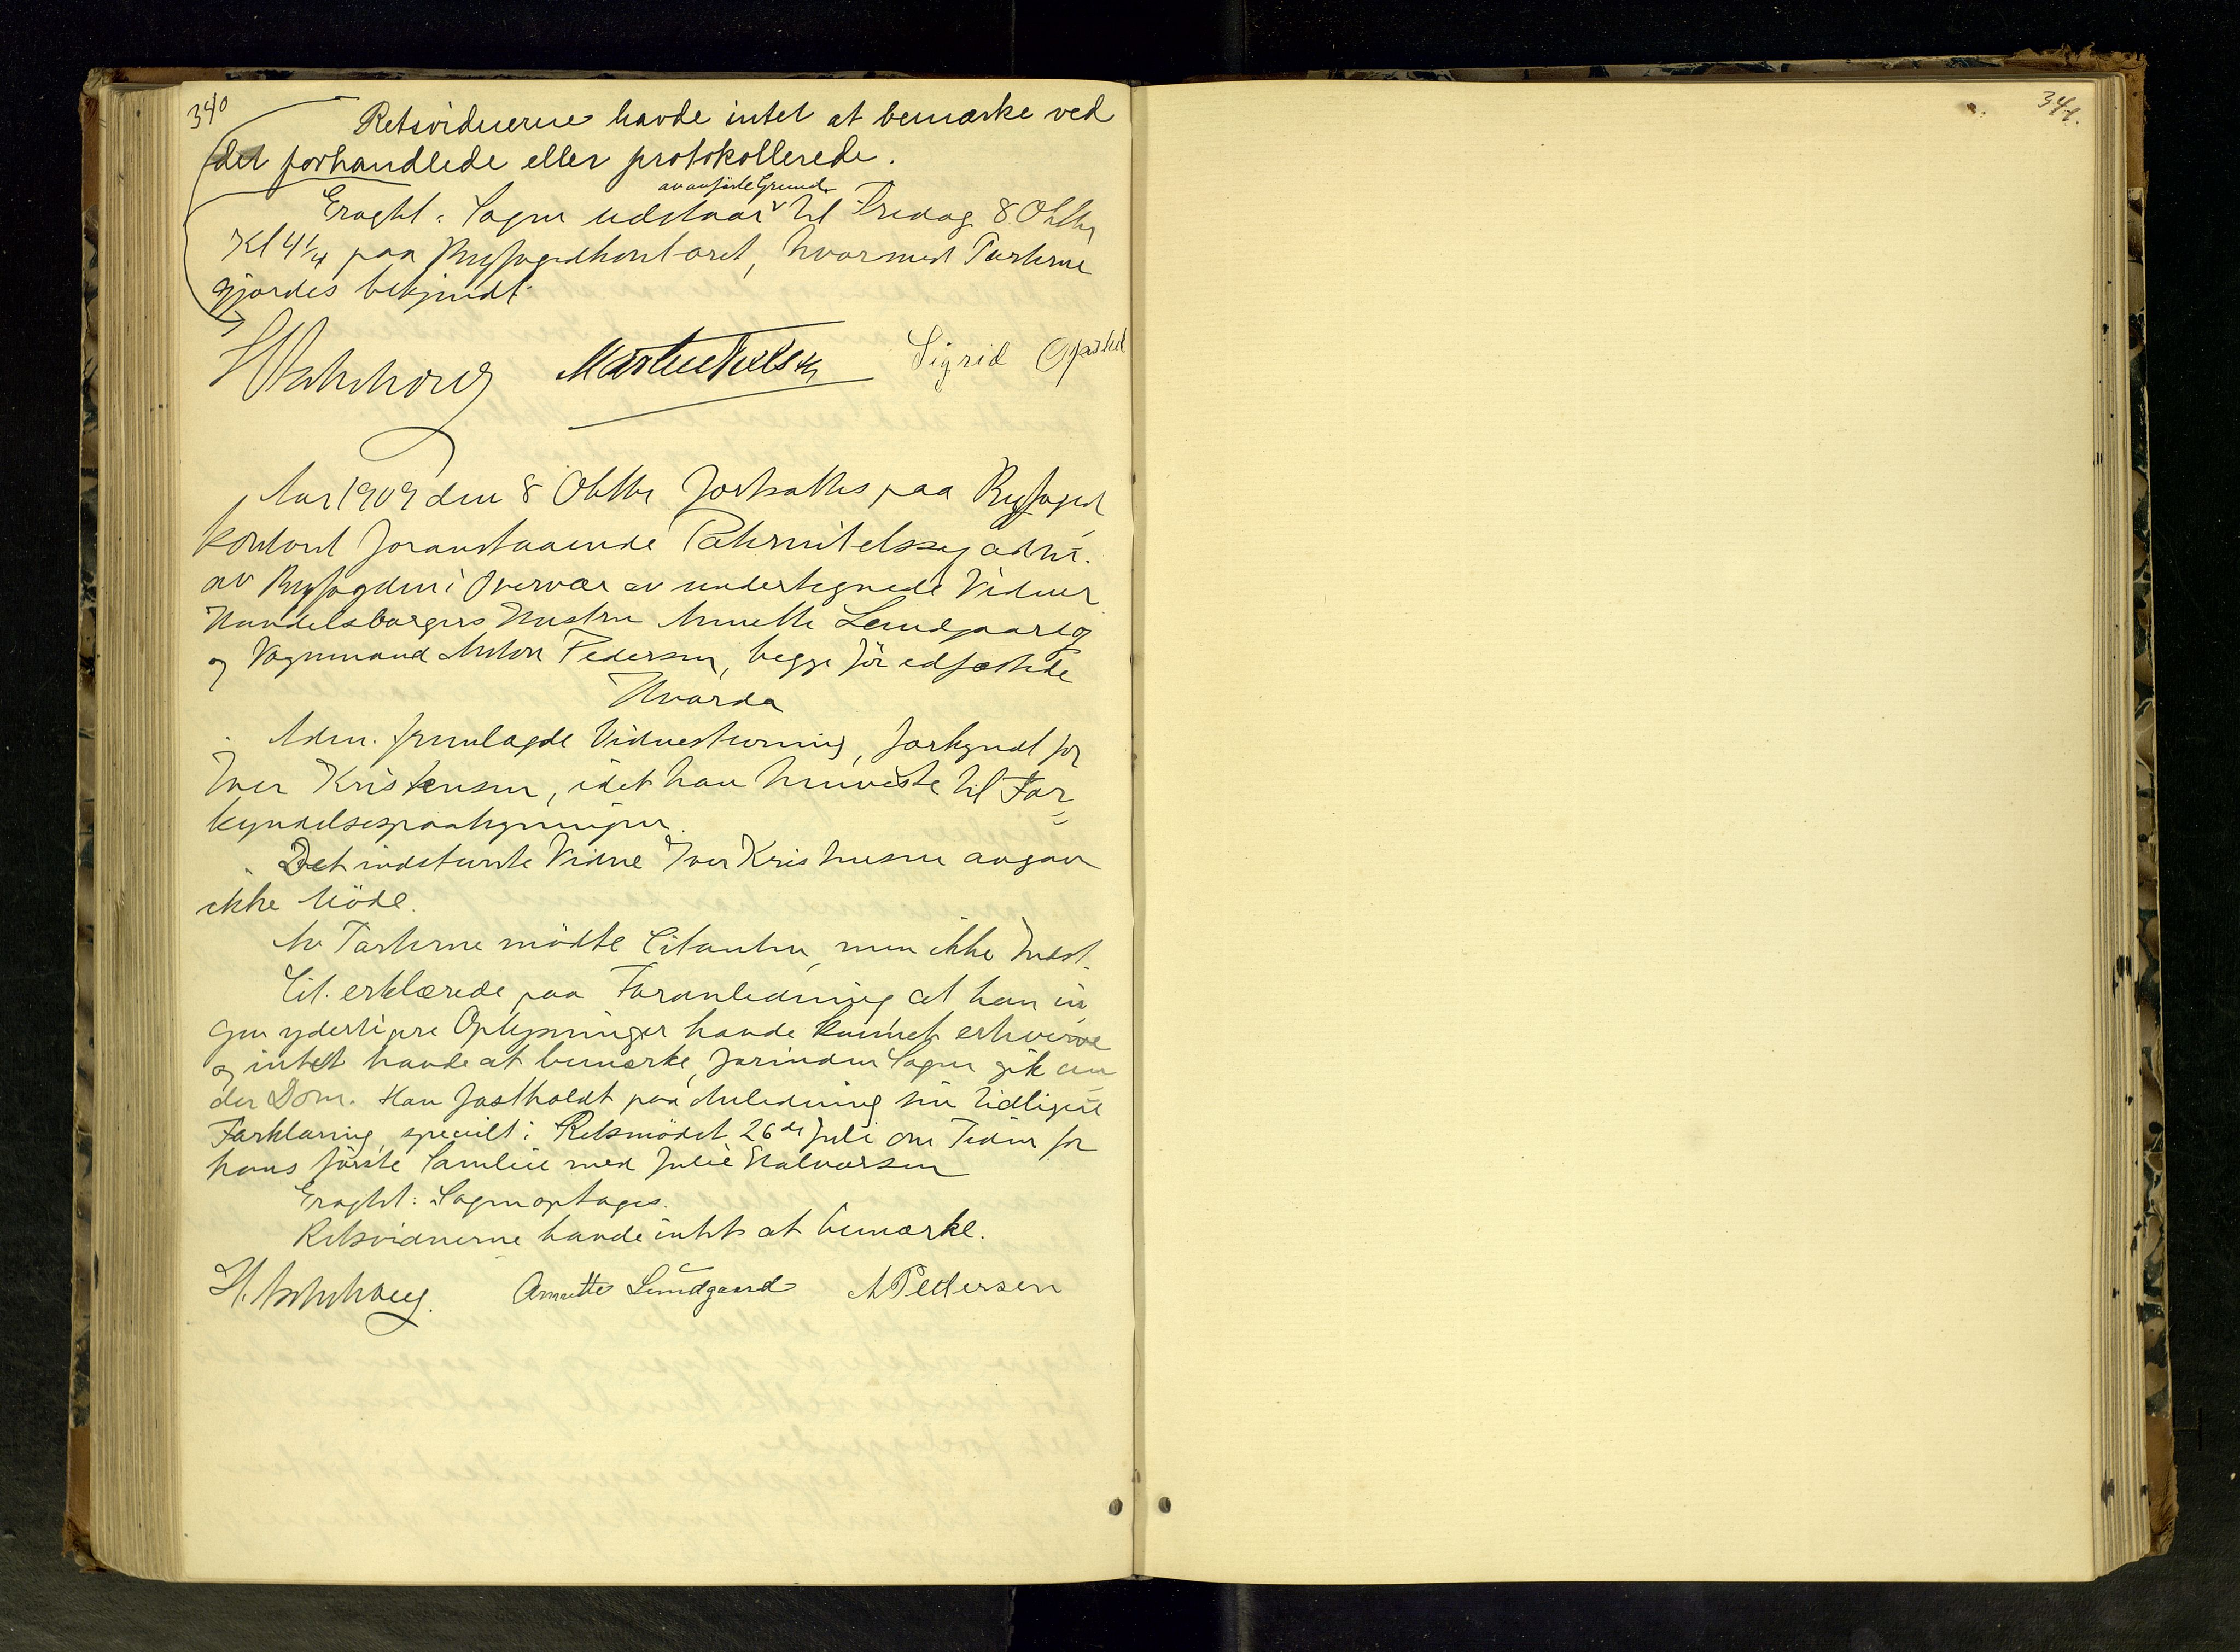 340
Retsvidnerne havde intet at bemærke ved
det forhandlede eller protokollerede.
av anførte Grund
Eragtet: Sagen udstaar til Fredag 8 Oktbr
Kl 4 1/4 paa Byfogedkontoret, hvormed Parterne
gjordes bekjendt.
Sigrid
Aar 1909 den 8 Oktbr fortsattes paa Byfoged
kontoret foranstaaende Paternitetssag adm.
av Byfogden i Overvær av undertegnede Vidner
Handelsborgers Hustru Annette Lundgaard og
og Vognmand Anton Pedersen, begge før edfæstede
Hvorda
Adm. fremlagde Vidnestevning, forkyndt for
Iver Kristensen, idet han henviste til For
kyndelsespaategningen.
Det indstevnte Vidne Iver Kristensen avgav
ikke Møde.
Av Parterne mødte Citanten, men ikke Indst.
Cit. erklærede paa Foranledning at han in
gen yderligere Oplysninger havde kunnet erhverve
og intet havde at bemærke, forinden Sagen gik un
der Dom. Han fastholdt paa Anledning sin tidligere
Forklaring, specielt i Retsmødet 26de Juli om Tiden for
hans første Samleie med Julie Halvorsen
Eragtet: Sagen optages.
Retsvidnerne havde intet at bemærke.
Annette Lundgaard A Pedersen
344.